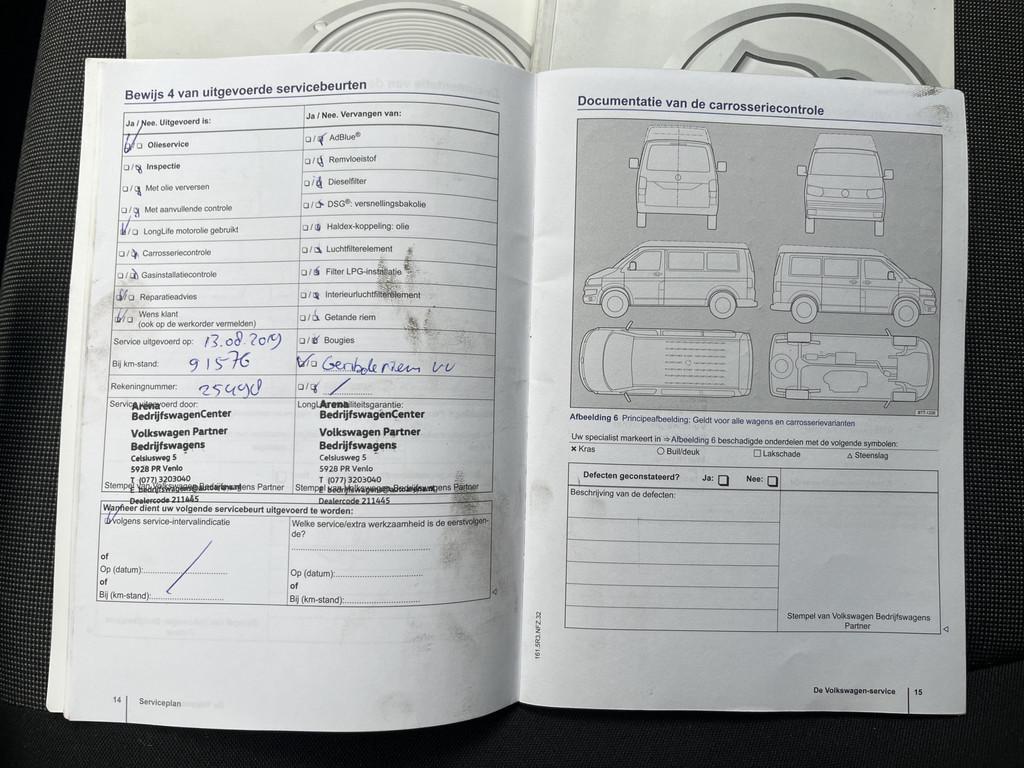 Bewijs 4 van uitgevoerde servicebeurten
Ja / Nee. Uitgevoerd is:
Olieservice
Inspectie
Met olie verversen
Met aanvullende controle
LongLife motorolie gebruikt
Carrosseriecontrole
Gasinstallatiecontrole
Reparatieadvies
Wens klant
(ook op de werkorder vermelden)
Service uitgevoerd op: 13.08.2019
Bij km-stand: 91576
Rekeningnummer:
Ja / Nee. Vervangen van:
AdBlue®
Remvloeistof
Dieselfilter
DSG®: versnellingsbakolie
Haldex-koppeling: olie
Luchtfilterelement
Filter LPG-installatie
Interieurluchtfilterelement
Getande riem
Bougies
Service uitgevoerd door:
Arena
BedrijfswagenCenter
Volkswagen Partner
Bedrijfswagens
Celsiusweg 5
5928 PR Venlo
T (077) 3203040
Stempel van Volkswagen Bedrijfswagens Partner
Dealercode 211445
Arena
BedrijfswagenCenter
Volkswagen Partner
Bedrijfswagens
Celsiusweg 5
5928 PR Venlo
T (077) 3203040
Stempel van Volkswagen Bedrijfswagens Partner
Dealercode 211445
Wanneer dient uw volgende servicebeurt uitgevoerd te worden:
volgens service-intervalindicatie
of
Op (datum):
of
Bij (km-stand):
Welke service/extra werkzaamheid is de eerstvolgen-
de?
Op (datum):
of
Bij (km-stand):
14 Serviceplan
Documentatie van de carrosseriecontrole
Afbeelding 6 Principeafbeelding: Geldt voor alle wagens en carrosserievarianten
Uw specialist markeert in ⇒ Afbeelding 6 beschadigde onderdelen met de volgende symbolen:
× Kras ○ Buil/deuk □ Lakschade △ Steenslag
Defecten geconstateerd? Ja: Nee:
Beschrijving van de defecten:
Stempel van Volkswagen Bedrijfswagens
Partner
161.5R3.NFZ.32
De Volkswagen-service 15